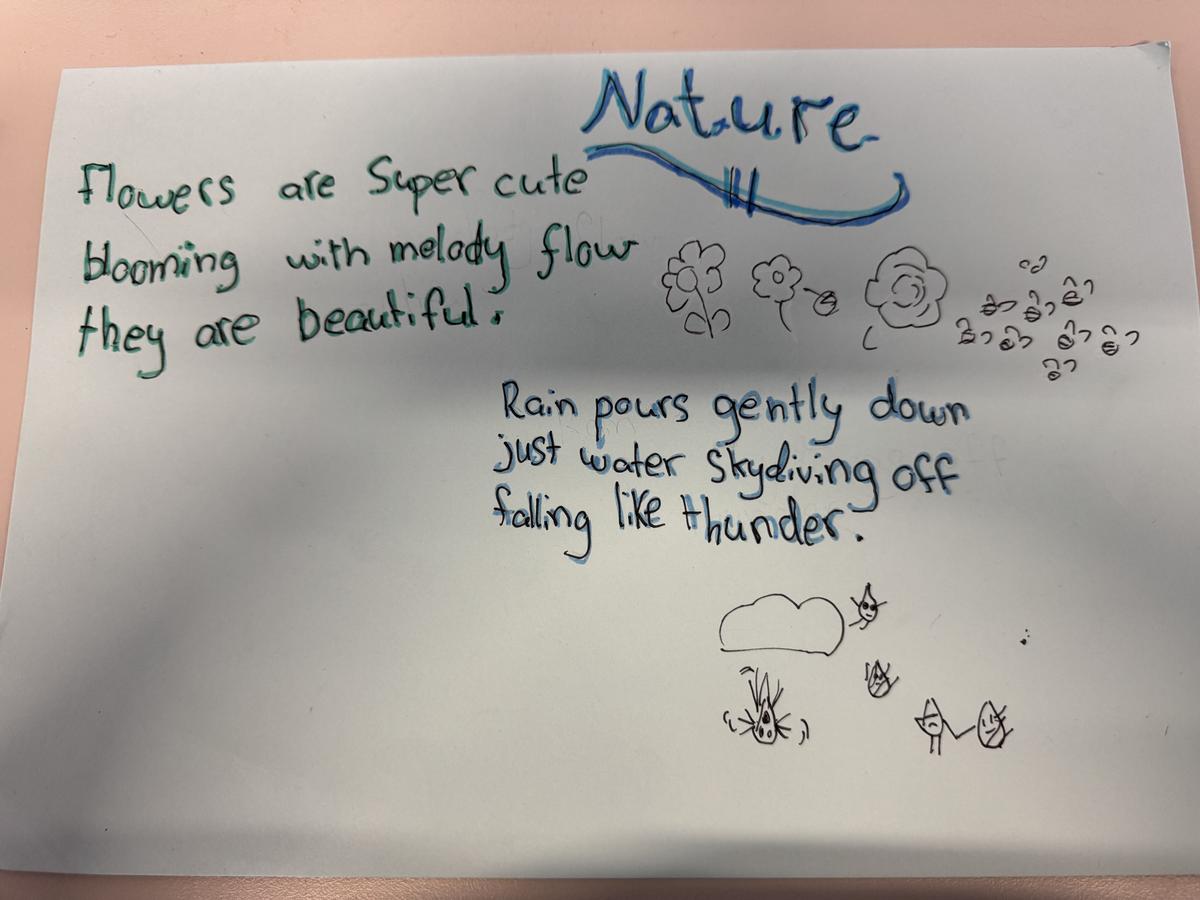 Nature
Flowers are Super cute
blooming with melody flow
they are beautiful.
Rain pours gently down
just water skydiving off
falling like thunder.